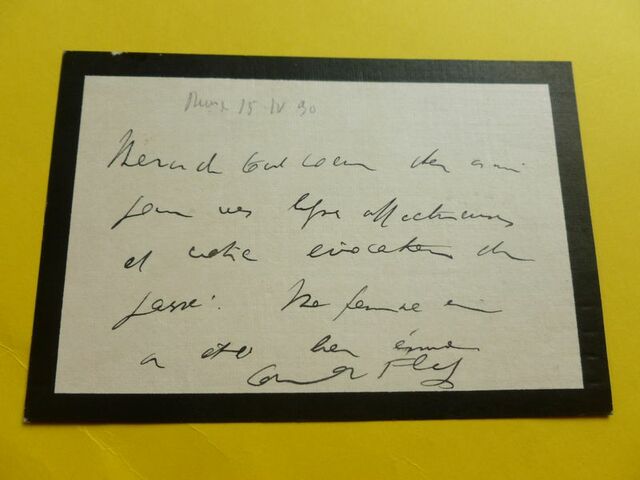 15 IV 30
Merci de tout coeur cher ami
pour vos lignes affectueuses
et votre évocation du
passé. Ma femme en
a été bien émue